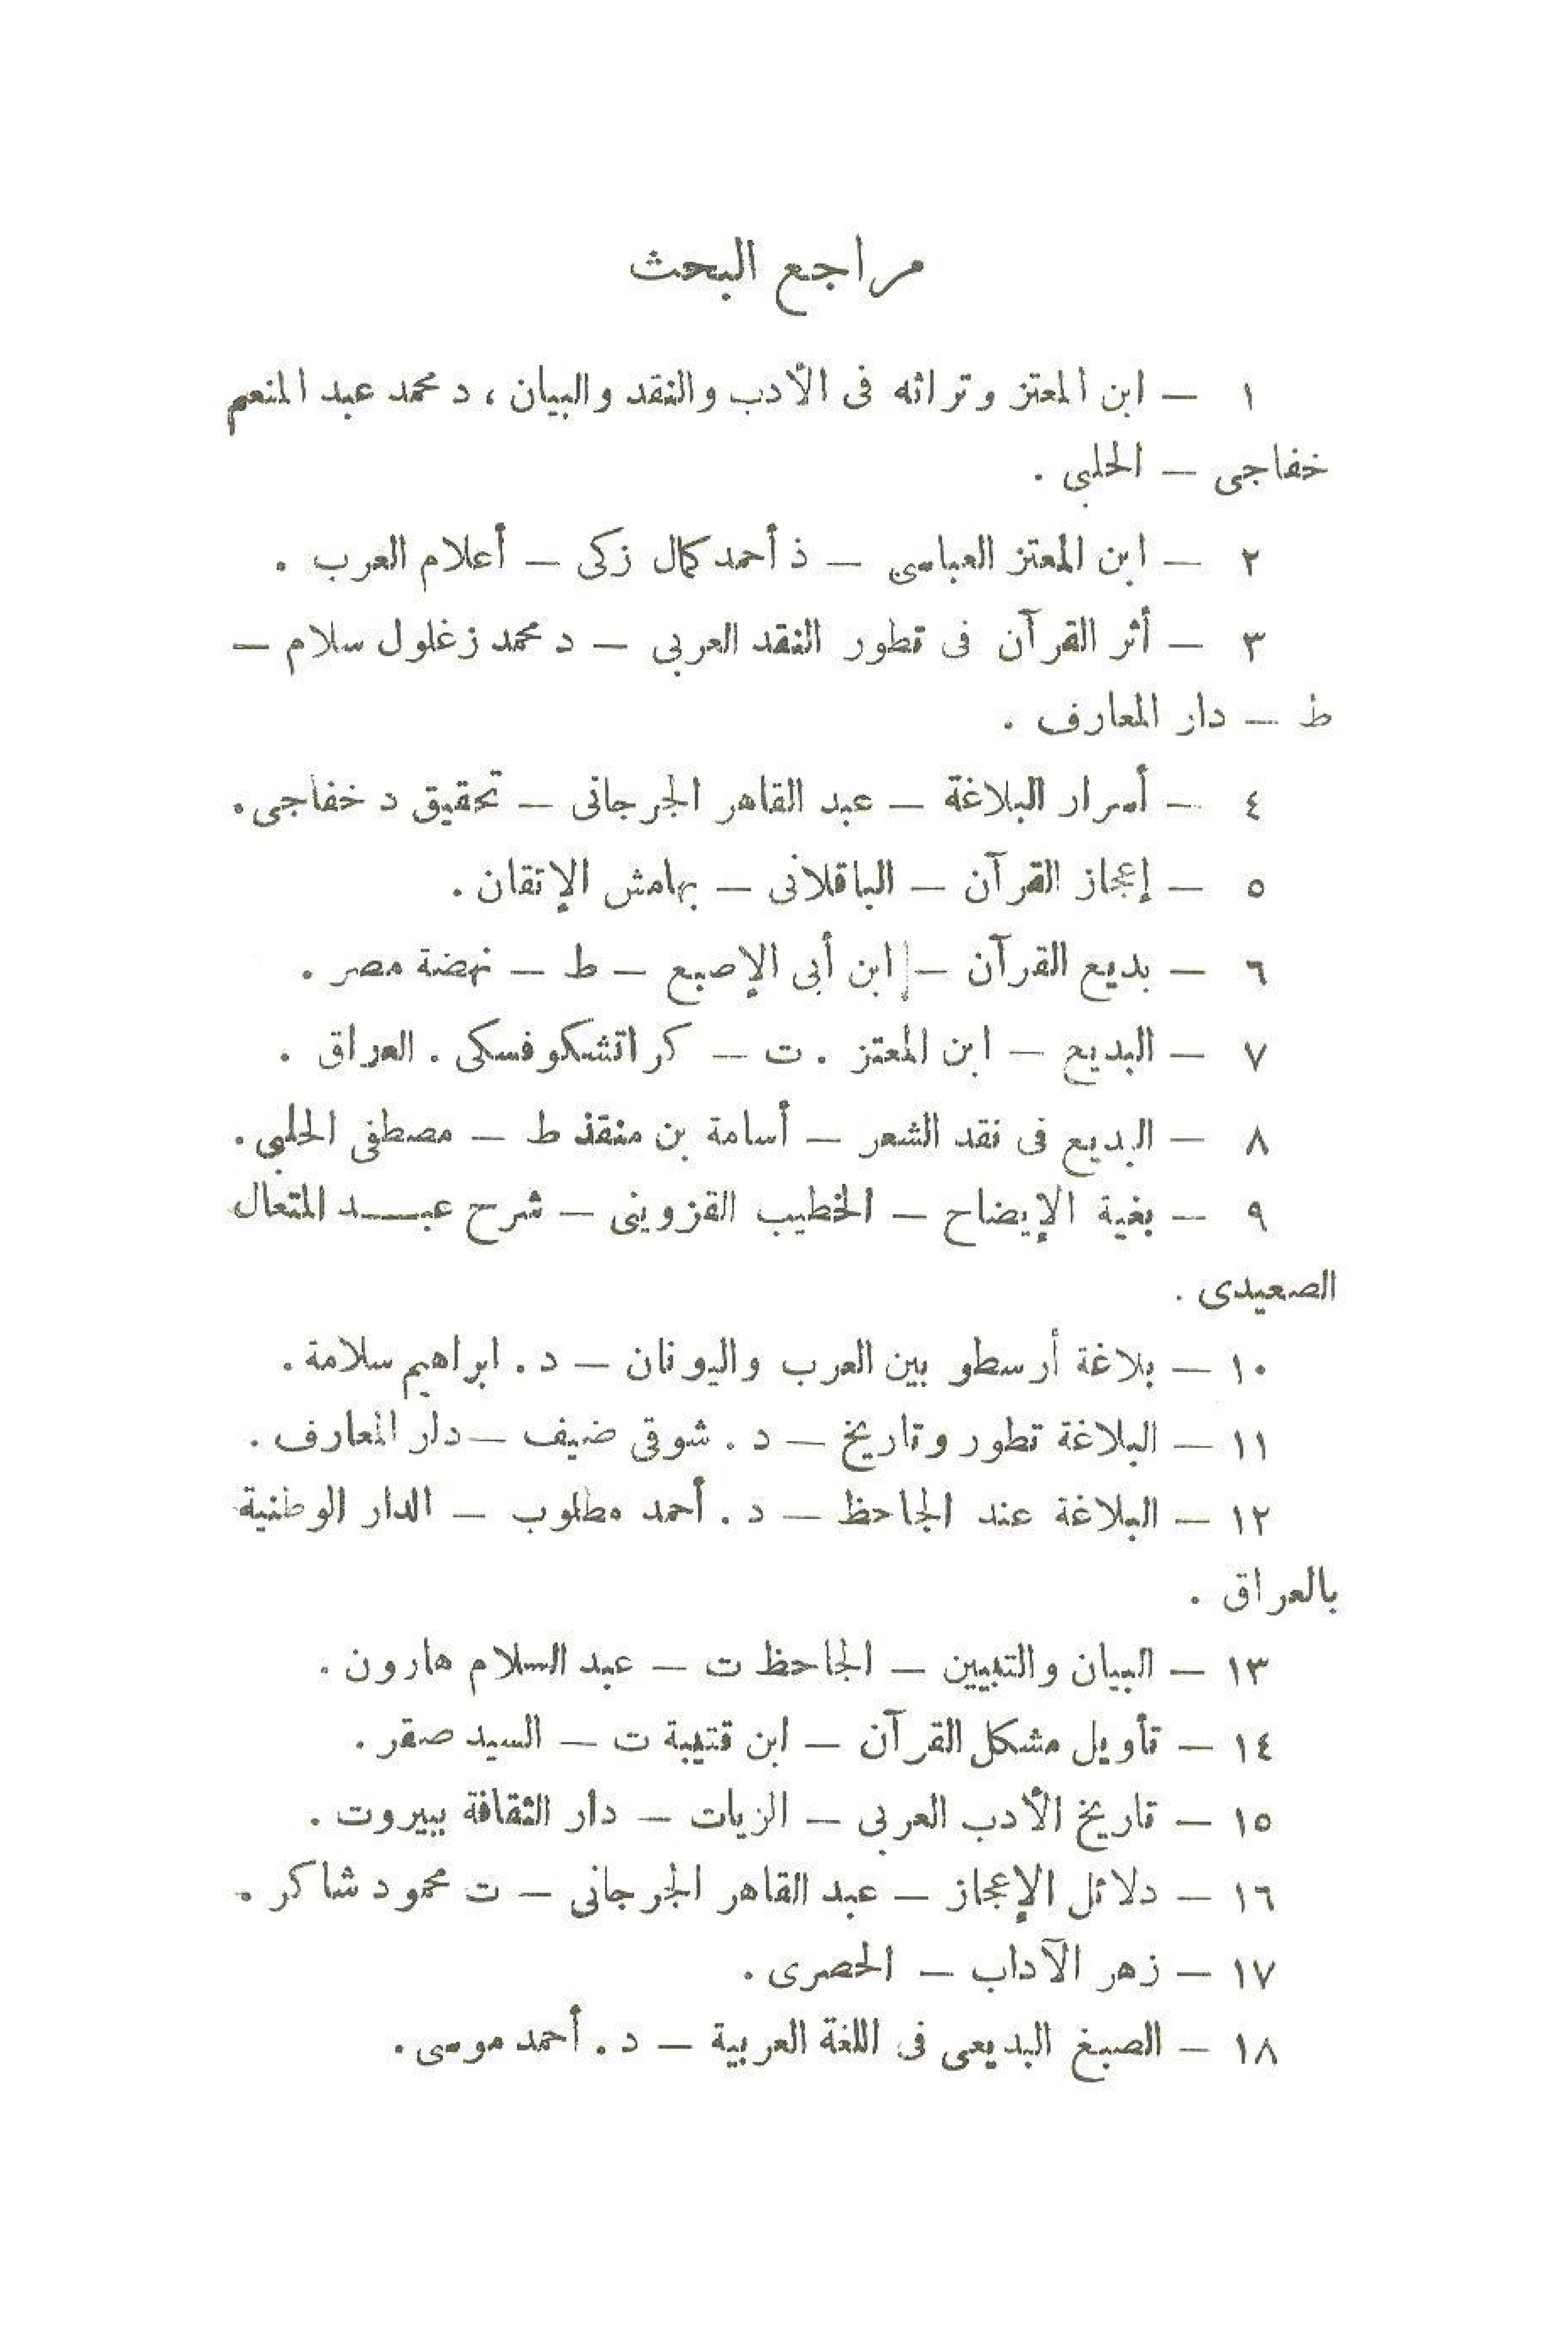 مراجع البحث
١ — ابن المعتز وتراثه فى الأدب والنقد والبيان ، د محمد عبد المنعم
خفاجى — الحلبى .
٢ — ابن المعتز العباسى — ذ أحمد كمال زكى — أعلام العرب .
٣ — أثر القرآن فى تطور النقد العربى — د محمد زغلول سلام —
ط — دار المعارف .
٤ — أسرار البلاغة — عبد القاهر الجرجانى — تحقيق د خفاجى .
٥ — إعجاز القرآن — الباقلانى — بهامش الإتقان .
٦ — بديع القرآن — ابن أبى الإصبع — ط — نهضة مصر .
٧ — البديع — ابن المعتز . ت — كراتشكوفسكى . العراق .
٨ — البديع فى نقد الشعر — أسامة بن منقذ ط — مصطفى الحلبى .
٩ — بغية الإيضاح — الخطيب القزوينى — شرح عبـــد المتعال
الصعيدى .
١٠ — بلاغة أرسطو بين العرب واليونان — د . ابراهيم سلامة .
١١ — البلاغة تطور وتاريخ — د . شوقى ضيف — دار المعارف .
١٢ — البلاغة عند الجاحظ — د . أحمد مطلوب — الدار الوطنية
بالعراق .
١٣ — البيان والتبيين — الجاحظ ت — عبد السلام هارون .
١٤ — تأويل مشكل القرآن — ابن قتيبة ت — السيد صقر .
١٥ — تاريخ الأدب العربى — الزيات — دار الثقافة ببيروت .
١٦ — دلائل الإعجاز — عبد القاهر الجرجانى — ت محمود شاكر .
١٧ — زهر الآداب — الحصرى .
١٨ — الصبغ البديعى فى اللغة العربية — د . أحمد موسى .